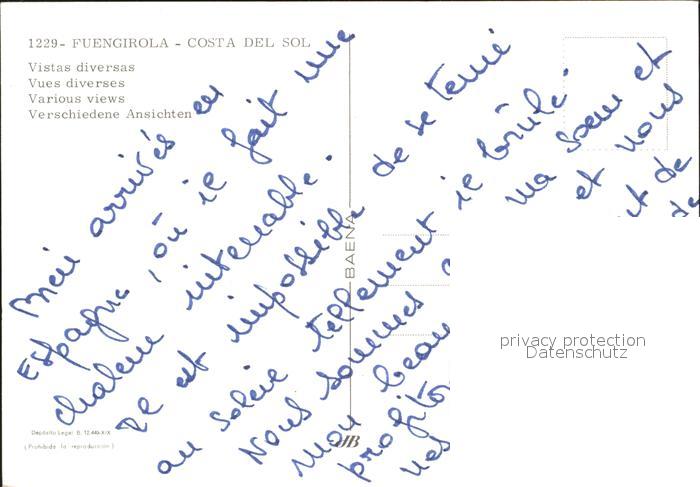 1229- FUENGIROLA - COSTA DEL SOL
Vistas diversas
Vues diverses
Various views
Verschiedene Ansichten
Bien arrivés en
Espagne, où il fait une
chaleur intenable.
Il est impossible de se tenir
au soleil tellement il brûle.
Nous sommes ma soeur et
mon beau et nous
profitons et de
nos de
BAENA
privacy protection
Datenschutz
Depósito Legal B. 12.445-XIX
(Prohibida la reproducción)